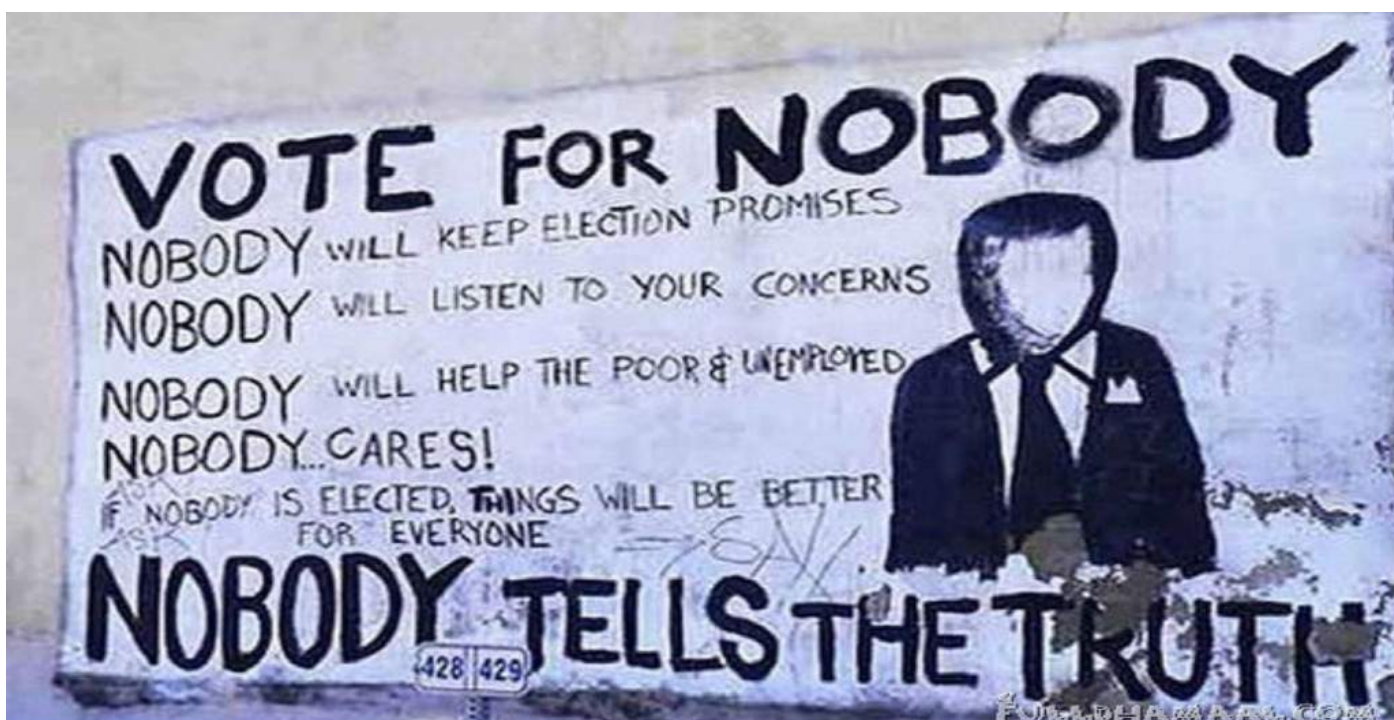 VOTE FOR NOBODY
NOBODY WILL KEEP ELECTION PROMISES
NOBODY WILL LISTEN TO YOUR CONCERNS
NOBODY WILL HELP THE POOR & UNEMPLOYED
NOBODY...CARES!
IF NOBODY IS ELECTED, THINGS WILL BE BETTER
FOR EVERYONE
NOBODY TELLS THE TRUTH
428 429